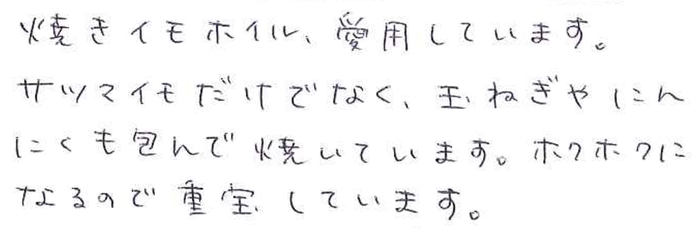 焼きイモホイル、愛用しています。
サツマイモだけでなく、玉ねぎやにん
にくも包んで焼いています。ホクホクに
なるので重宝しています。